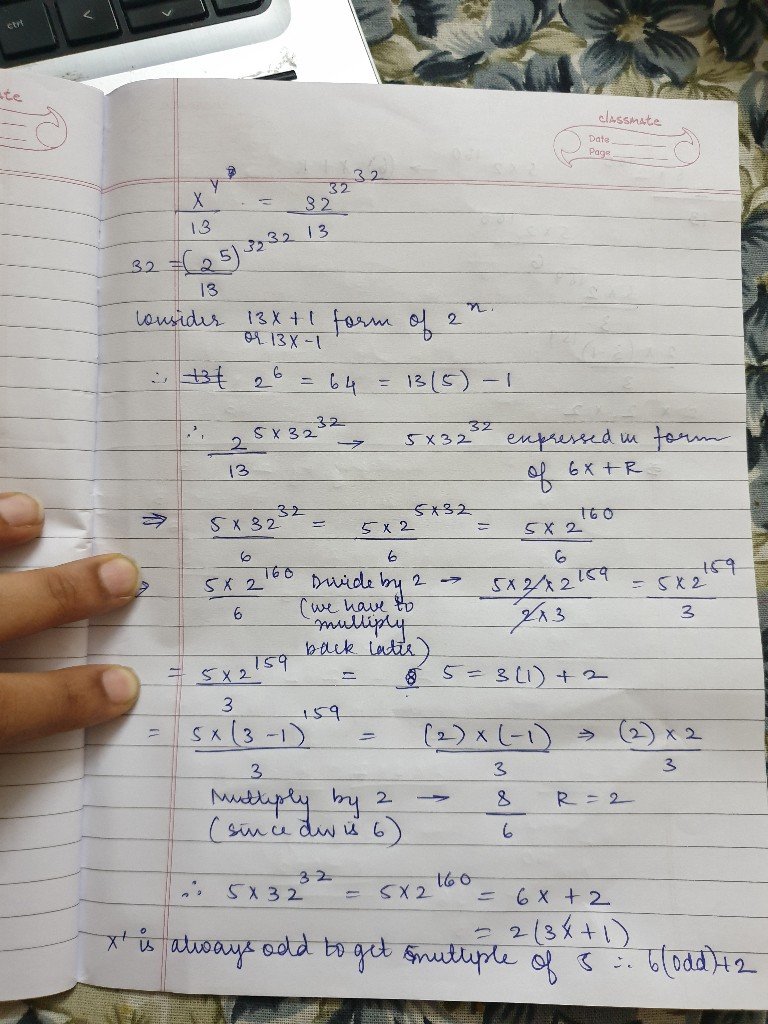 ctrl
ate
classmate
Date
Page
x^y / 13 = 32^32^32 / 13
32 = (2^5)^32^32 / 13
Consider 13x + 1 form of 2^n.
or 13x - 1
∴ 2^6 = 64 = 13(5) - 1
∴ 2^5×32^32 / 13 → 5×32^32 expressed in form
of 6x + R
⇒ 5×32^32 / 6 = 5×2^5×32 / 6 = 5×2^160 / 6
⇒ 5×2^160 / 6 Divide by 2 → 5×2×2^159 / 2×3 = 5×2^159 / 3
(we have to
multiply
back later)
= 5×2^159 / 3 = 5 = 3(1) + 2
= 5×(3-1)^159 / 3 = (2)×(-1) / 3 ⇒ (2)×2 / 3
Multiply by 2 → 8 / 6 R = 2
(since div is 6)
∴ 5×32^32 = 5×2^160 = 6x + 2
= 2(3x+1)
'x' is always odd to get multiple of 5 ∴ 6(odd)+2